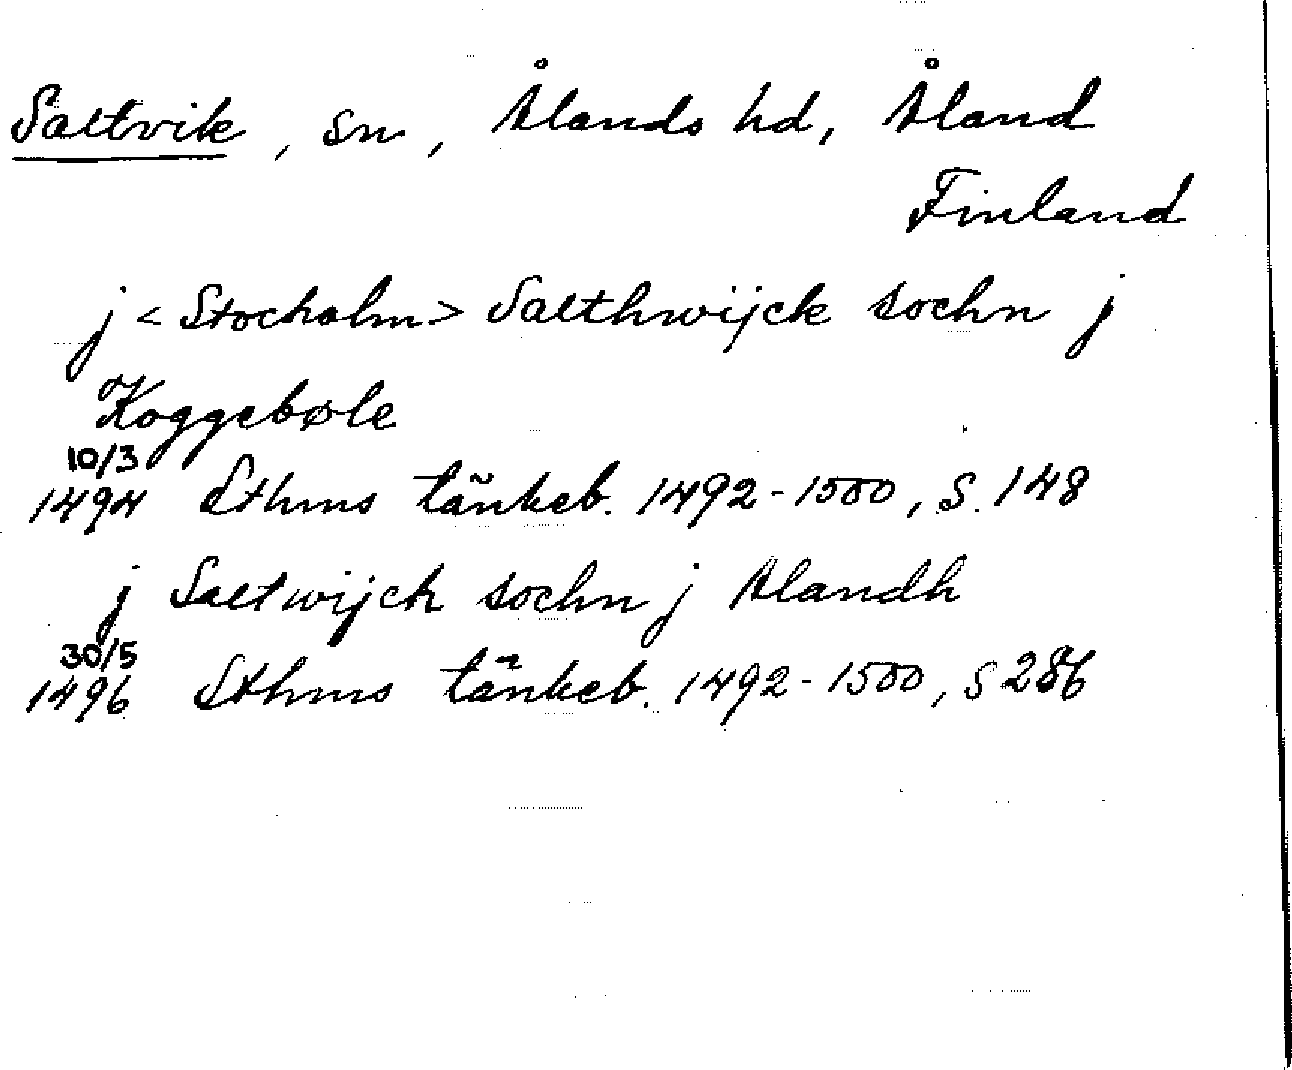 Saltvik, sn, Ålands hd, Åland
Finland
j <Stocholm> Salthwijck sochn j
Koggebøle
10/3
1494 Sthms tänkeb. 1492-1500, S. 148
j Saltwijck sochn j Alandh
30/5
1496 Sthms tänkeb. 1492-1500, S 286